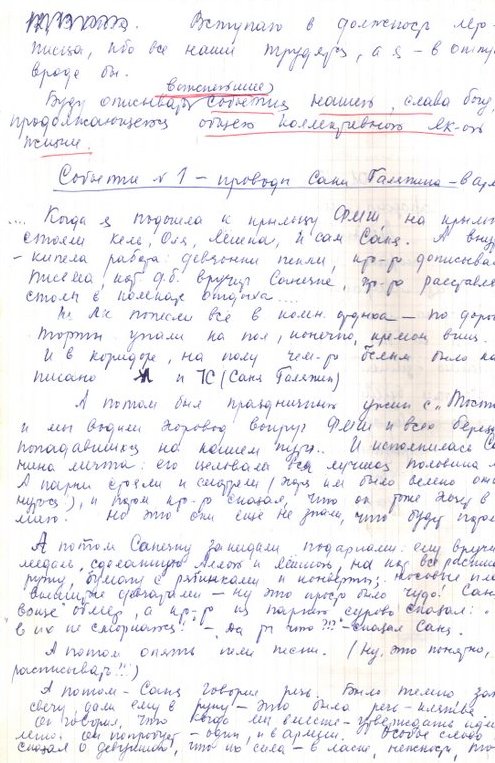 Вступаю в должность лето-
писца, ибо все наши трудятся, а я – в отпу
вроде бы.
важнейшие
Буду описывать события нашей, слава богу,
продолжающейся общей коллективной ЛК-ой
жизни.
Событие № 1 – проводы Сани Галяткина – в арм
.... Когда я подошла к крыльцу ФМШ, на крыль
стояли Оля, Лёшка, и сам Саня. А внут
- кипела работа: девчонки пекли, кто-то дописывал
письма, кот. д.б. вручить Санечке, кто-то расставлял
столы в комнате отдыха....
несли всё в комн. отдыха – по доро
торты упали на пол, конечно, кремом вниз.
И в коридоре, на полу чем-то белым было на
писано и ГС (Саня Галяткин)
А потом был праздничный ужин с „Тост
и мы водили хоровод вокруг ФМШ и всю берез
попадавшихся на нашем пути.. И исполнилась Са
нина мечта: его целовала вся лучшая половина
А парни стояли и смотрели (хотя им было велено отв
нуться), и потом кто-то сказал, что он тоже хочет в
мию. Но это они ещё не знали, что будет пото
А потом Санечку закидали подарками: ему вручи
медаль, сделанную Аллой и Лёшкой, на кот. все распис
ручку, бумагу с рисунками и конверты; носовые пла
вышитые девчатами – ну это просто было чудо! Сан
„воще" обмер, а кто-то из парней сурово сказал: „
в их не сморкайся! – Да ты что?!!" – сказал Саня.
А потом опять пели песни. (Ну, это понятно,
расписывать!!)
А потом – Саня говорил речь. Было темно, заж
свечу, дали ему в руки – это была речь-клятва.
Он говорил, что когда мы вместе – утверждать идеа
легко. Он попробует – один, и в армии. Особое слово
сказал о девушках, что их сила – в ласке, нежности, что